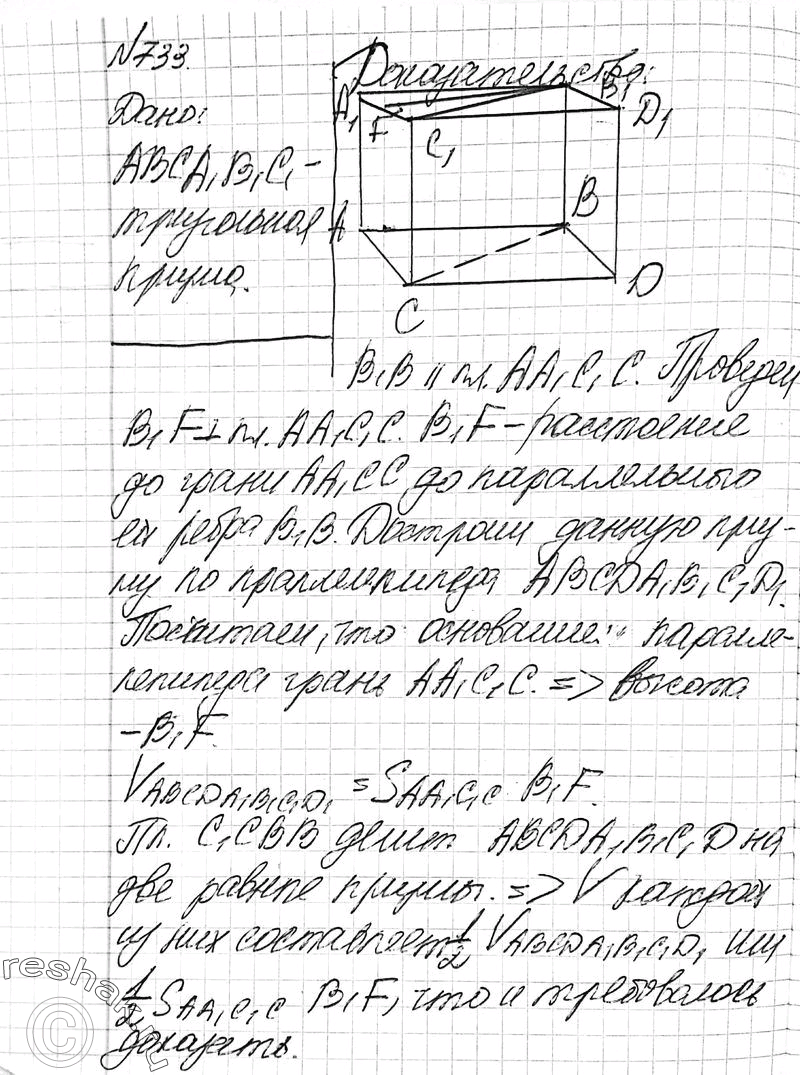 №733.
Дано:
ABCA₁B₁C₁ –
треугольная
призма.
Доказательство:
A₁ F C₁ B₁ D₁
A B
C D
B₁B ∥ пл. AA₁C₁C. Проведем
B₁F ⊥ пл. AA₁C₁C. B₁F – расстояние
до грани AA₁CC до параллельного
ей ребра B₁B. Достроим данную приз-
му до праллелепипеда ABCDA₁B₁C₁D₁.
Посчитаем, что основание паралле-
лепипеда грань AA₁C₁C. => высота
– B₁F.
V ABCDA₁B₁C₁D₁ = S AA₁C₁C B₁F.
Пл. C₁CBB делит ABCDA₁B₁C₁D на
две равные призмы. => V каждой
из них составляет 1/2 V ABCDA₁B₁C₁D₁ или
1/2 S AA₁C₁C B₁F, что и требовалось
доказать.
reshak.ru
©